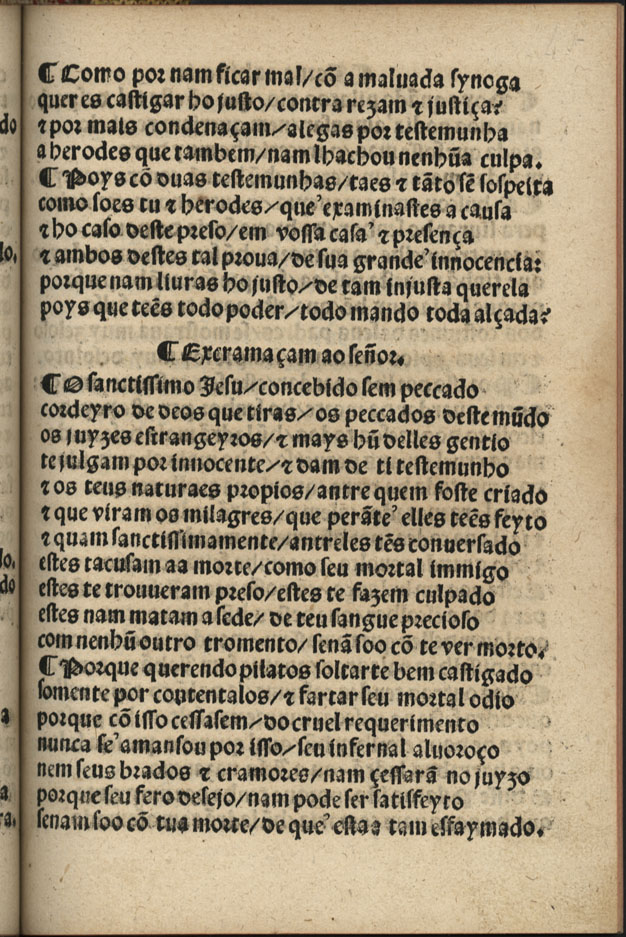 ¶ Como por nam ficar mal/cõ a maluada synoga
queres castigar ho justo/contra rezam ⁊ justiça?
⁊ por mais condenaçam/alegas por testemunha
a herodes que tambem/nam lhachou nenhũa culpa.
¶ Poys cõ duas testemunhas/taes ⁊ tãto sẽ sospeita
como soes tu ⁊ herodes/que examinastes a causa
⁊ ho caso deste preso/em vossa casa ⁊ presença
⁊ ambos destes tal prova/de sua grande innocencia:
porque nam liuras ho justo/de tam injusta querela
poys que teẽs todo poder/todo mando toda alçada?
¶ Excramaçam ao señor.
¶ O sanctissimo Jesu/concebido sem peccado
cordeyro de deos que tiras/os peccados deste mũdo
os juyzes estrangeyros/⁊ mays hũ delles gentio
te julgam por innocente/⁊ dam de ti testemunho
⁊ os teus naturaes propios/antre quem foste criado
⁊ que viram os milagres/que perãte elles teẽs feyto
⁊ quam sanctissimamente/antreles tẽs conuersado
estes tacusam aa morte/como seu mortal immigo
estes te trouueram preso/estes te fazem culpado
estes nam matam a sede/de teu sangue precioso
com nenhũ outro tromento/senã soo cõ te ver morto.
¶ Porque querendo pilatos soltarte bem castigado
somente por contentalos/⁊ fartar seu mortal odio
porque cõ isso cessasem/do cruel requerimento
nunca se amansou por isso/seu infernal aluoroço
nem seus brados ⁊ cramores/nam çessarã no juyzo
porque seu fero desejo/nam pode ser satisfeyto
senam soo cõ tua morte/de que estaa tam esfaymado.
do
lo.
lo.
do
a
a
ra.